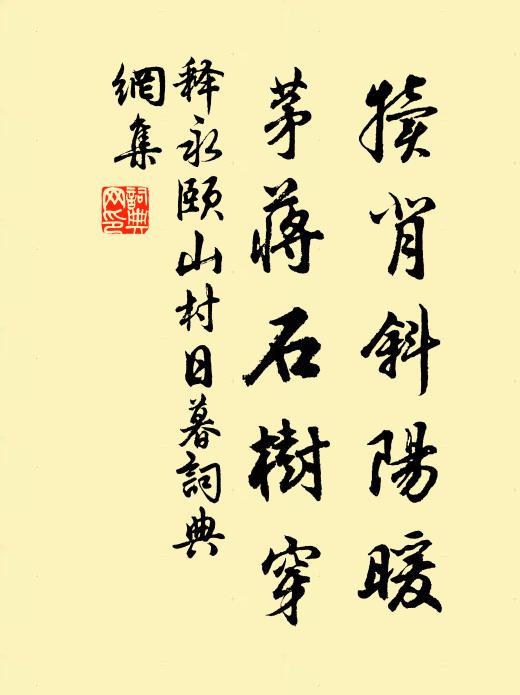 犢背斜陽暖
茅蔣石樹穿
释永頤山村日暮詞典
網集
詞典網印